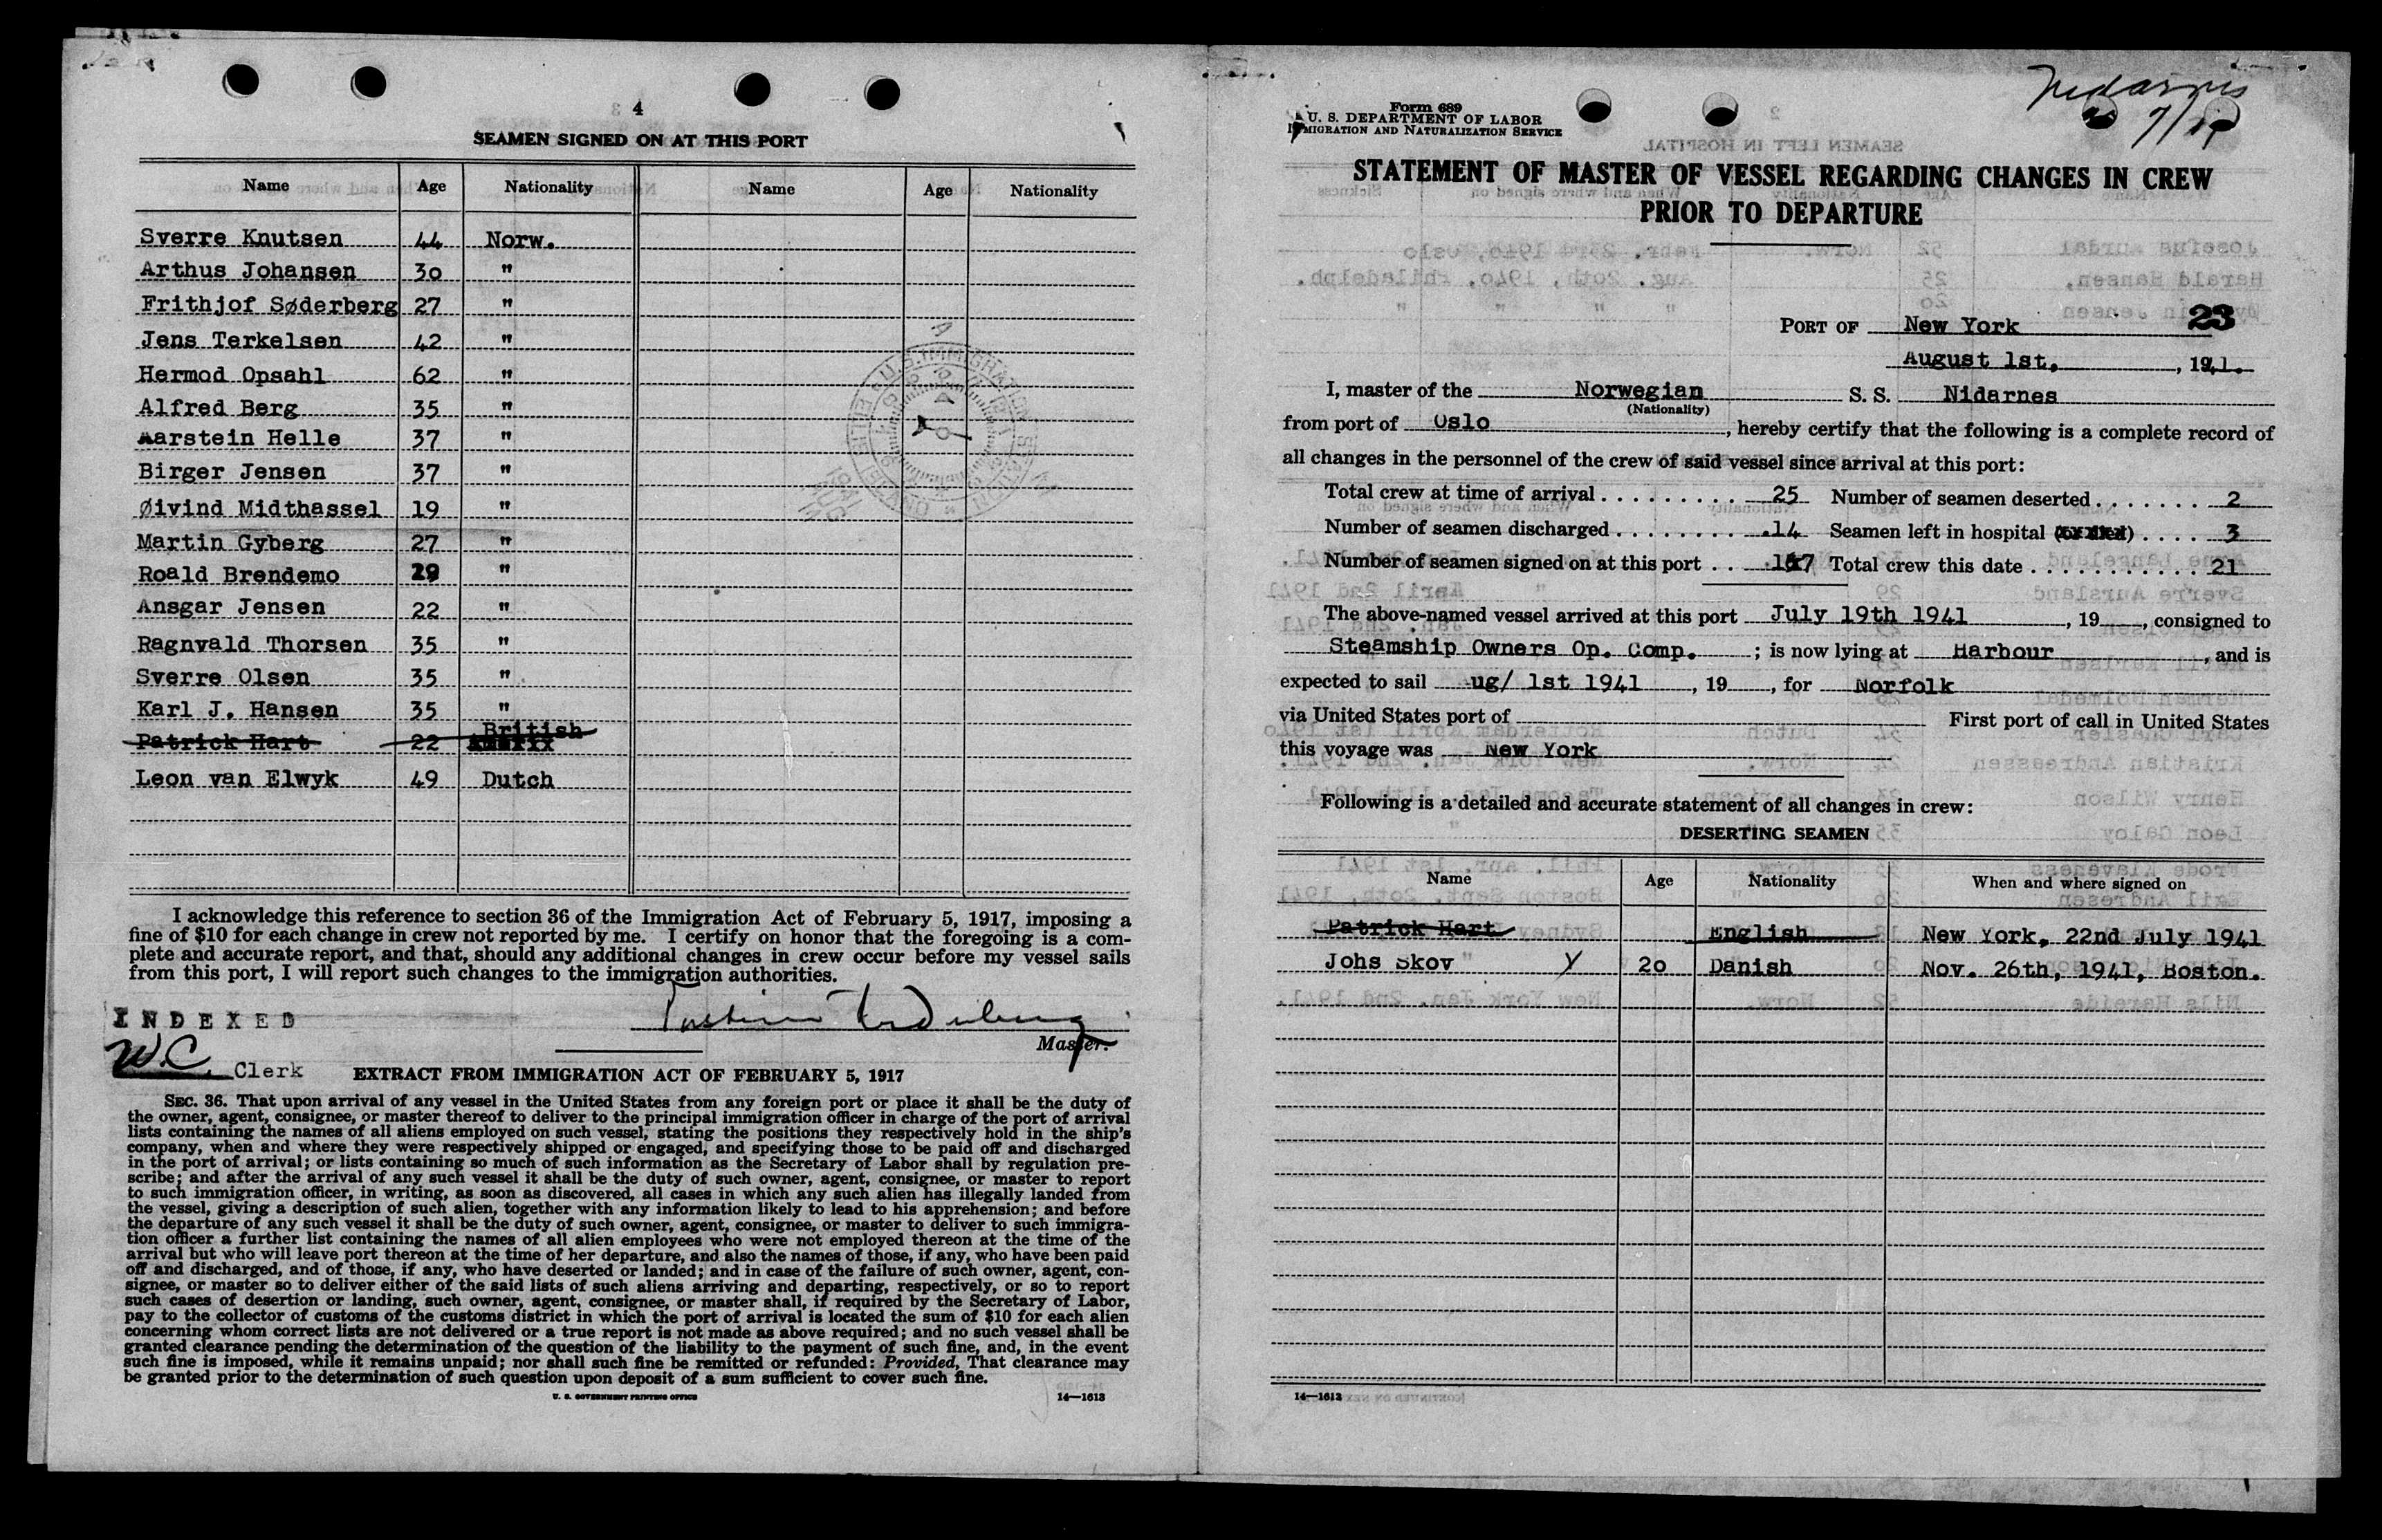 4
SEAMEN SIGNED ON AT THIS PORT
Name Age Nationality Name Age Nationality
Sverre Knutsen 44 Norw.
Arthus Johansen 30 "
Frithjof Søderberg 27 "
Jens Terkelsen 42 "
Hermod Opsahl 62 "
Alfred Berg 35 "
Aarstein Helle 37 "
Birger Jensen 37 "
Øivind Midthassel 19 "
Martin Gyberg 27 "
Roald Brendemo 29 "
Ansgar Jensen 22 "
Ragnvald Thorsen 35 "
Sverre Olsen 35 "
Karl J. Hansen 35 "
Patrick Hart 22 British
Leon van Elwyk 49 Dutch
I acknowledge this reference to section 36 of the Immigration Act of February 5, 1917, imposing a
fine of $10 for each change in crew not reported by me. I certify on honor that the foregoing is a com-
plete and accurate report, and that, should any additional changes in crew occur before my vessel sails
from this port, I will report such changes to the immigration authorities.
INDEXED
Master.
W.C. Clerk
EXTRACT FROM IMMIGRATION ACT OF FEBRUARY 5, 1917
SEC. 36. That upon arrival of any vessel in the United States from any foreign port or place it shall be the duty of
the owner, agent, consignee, or master thereof to deliver to the principal immigration officer in charge of the port of arrival
lists containing the names of all aliens employed on such vessel, stating the positions they respectively hold in the ship's
company, when and where they were respectively shipped or engaged, and specifying those to be paid off and discharged
in the port of arrival; or lists containing so much of such information as the Secretary of Labor shall by regulation pre-
scribe; and after the arrival of any such vessel it shall be the duty of such owner, agent, consignee, or master to report
to such immigration officer, in writing, as soon as discovered, all cases in which any such alien has illegally landed from
the vessel, giving a description of such alien, together with any information likely to lead to his apprehension; and before
the departure of any such vessel it shall be the duty of such owner, agent, consignee, or master to deliver to such immigra-
tion officer a further list containing the names of all alien employees who were not employed thereon at the time of the
arrival but who will leave port thereon at the time of her departure, and also the names of those, if any, who have been paid
off and discharged, and of those, if any, who have deserted or landed; and in case of the failure of such owner, agent, con-
signee, or master so to deliver either of the said lists of such aliens arriving and departing, respectively, or so to report
such cases of desertion or landing, such owner, agent, consignee, or master shall, if required by the Secretary of Labor,
pay to the collector of customs of the customs district in which the port of arrival is located the sum of $10 for each alien
concerning whom correct lists are not delivered or a true report is not made as above required; and no such vessel shall be
granted clearance pending the determination of the question of the liability to the payment of such fine, and, in the event
such fine is imposed, while it remains unpaid; nor shall such fine be remitted or refunded: Provided, That clearance may
be granted prior to the determination of such question upon deposit of a sum sufficient to cover such fine.
U. S. GOVERNMENT PRINTING OFFICE 14—1613
Nidarnes
7/19
Form 689
U. S. DEPARTMENT OF LABOR
IMMIGRATION AND NATURALIZATION SERVICE
STATEMENT OF MASTER OF VESSEL REGARDING CHANGES IN CREW
PRIOR TO DEPARTURE
PORT OF New York 23
August 1st, , 1941.
I, master of the Norwegian S. S. Nidarnes
(Nationality)
from port of Oslo , hereby certify that the following is a complete record of
all changes in the personnel of the crew of said vessel since arrival at this port:
Total crew at time of arrival . . . . . . . . . . 25 Number of seamen deserted . . . . . . . 2
Number of seamen discharged . . . . . . . . . 14 Seamen left in hospital (or died) . . . . 3
Number of seamen signed on at this port . . 17 Total crew this date . . . . . . . . . . . 21
The above-named vessel arrived at this port July 19th 1941 , 19 , consigned to
Steamship Owners Op. Comp. ; is now lying at Harbour , and is
expected to sail ug/ 1st 1941 , 19 , for Norfolk
via United States port of First port of call in United States
this voyage was New York
Following is a detailed and accurate statement of all changes in crew:
DESERTING SEAMEN
Name Age Nationality When and where signed on
Patrick Hart English New York, 22nd July 1941
Johs Skov Y 20 Danish Nov. 26th, 1941, Boston.
14—1613